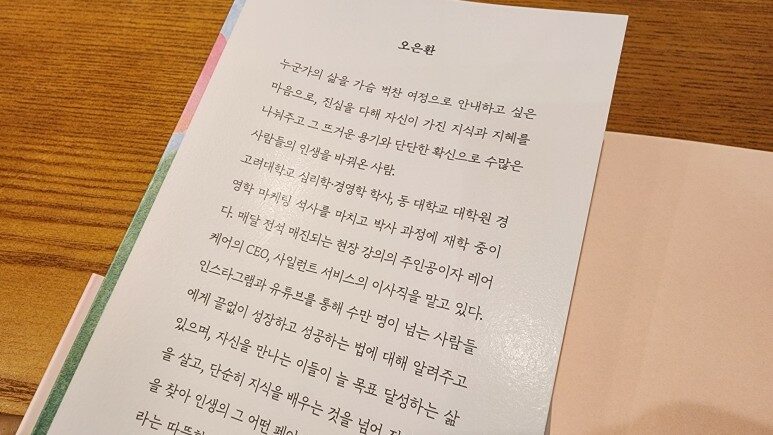 오은환
누군가의 삶을 가슴 벅찬 여정으로 안내하고 싶은
마음으로, 진심을 다해 자신이 가진 지식과 지혜를
나눠주고 그 뜨거운 용기와 단단한 확신으로 수많은
사람들의 인생을 바꿔온 사람.
고려대학교 심리학·경영학 학사, 동 대학교 대학원 경
영학 마케팅 석사를 마치고 박사 과정에 재학 중이
다. 매달 전석 매진되는 현장 강의의 주인공이자 레어
케어의 CEO, 사일런트 서비스의 이사직을 맡고 있다.
인스타그램과 유튜브를 통해 수만 명이 넘는 사람들
에게 끝없이 성장하고 성공하는 법에 대해 알려주고
있으며, 자신을 만나는 이들이 늘 목표 달성하는 삶
을 살고, 단순히 지식을 배우는 것을 넘어
을 찾아 인생의 그 어떤
라는